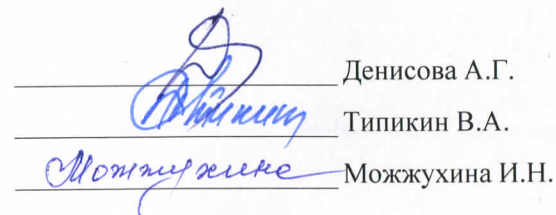 Денисова А.Г.
Типикин В.А.
Можжухина Можжухина И.Н.